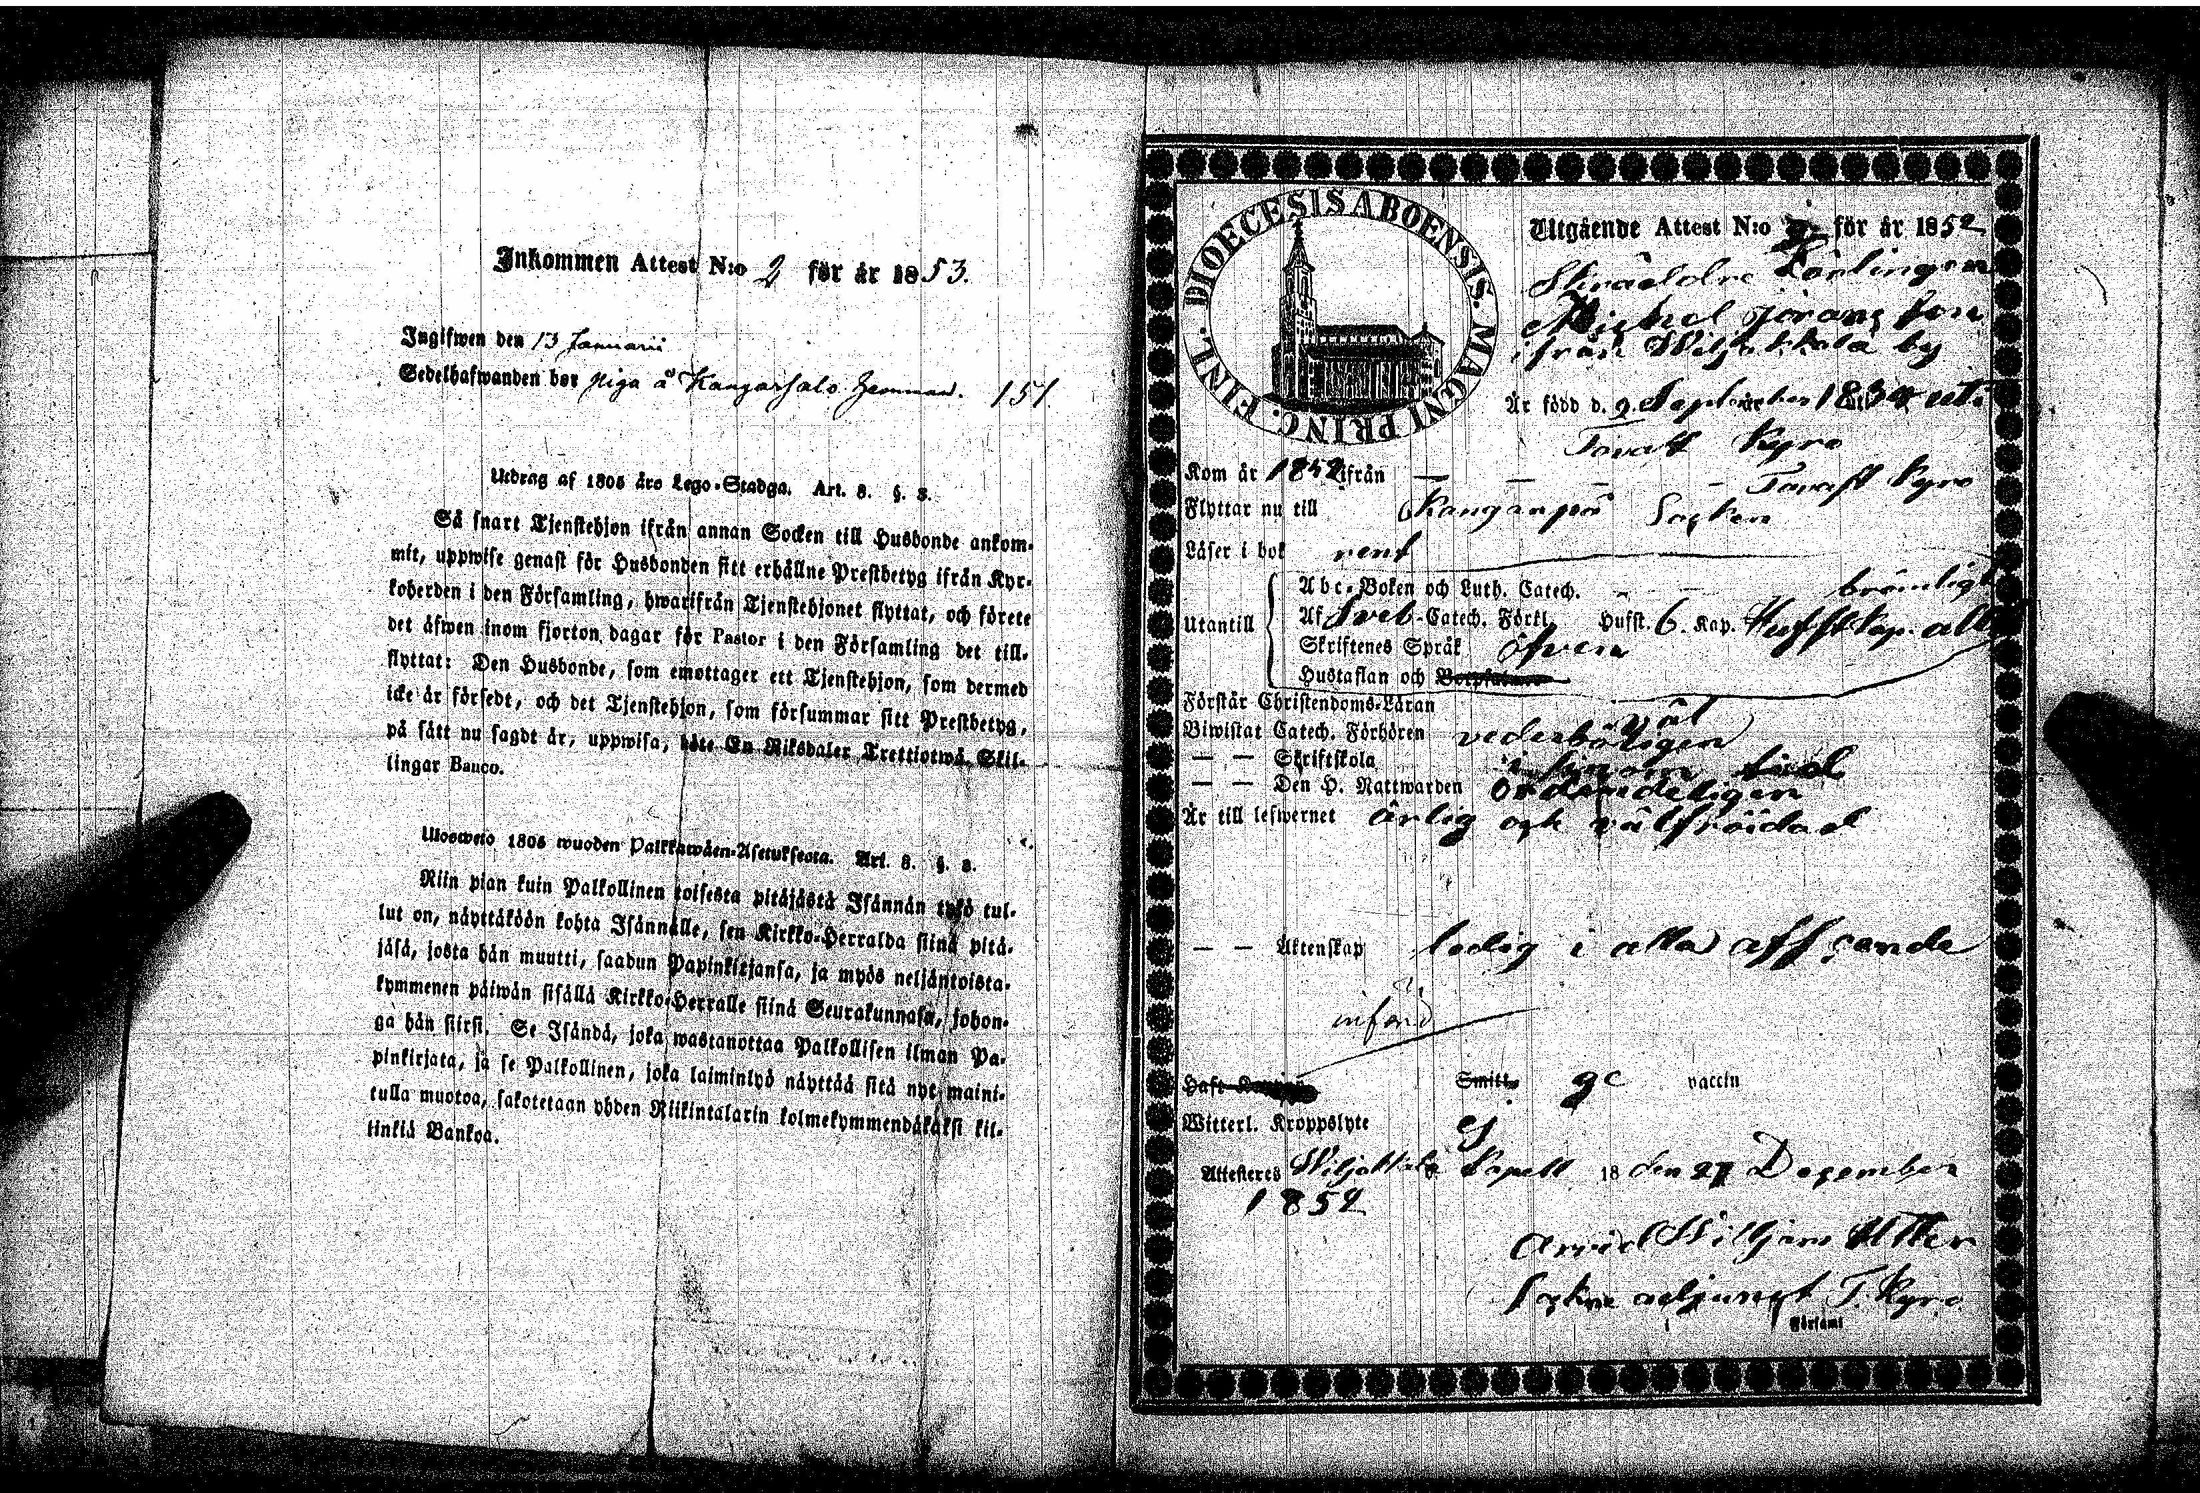 Inkommen Attest N:o 2 för år 1853.
Ingifwen den 13 Januarii
Sedelhafwanden bor piga å Kangarsalo hemman. 151
Utdrag af 1805 års Lego-Stadga. Art. 8. §. 8.
Så snart Tjenstehjon ifrån annan Socken till Husbonde ankom-
mit, uppwise genast för Husbonden sitt erhållne Prestbetyg ifrån Kyr-
koherden i den Församling, hwarifrån Tjenstehjonet flyttat, och förete
det äfwen inom fjorton dagar för Pastor i den Församling det till-
flyttat: Den Husbonde, som emottager ett Tjenstehjon, som dermed
icke är försedt, och det Tjenstehjon, som försummar sitt Prestbetyg,
på sätt nu sagdt är, uppwisa, böte En Riksdaler Trettiotwå Skil-
lingar Banco.
Ulosweto 1805 wuoden Palkkawäen-Asetuksesta. Art. 8. §. 8.
Niin pian kuin Palkollinen toisesta pitäjästä Isännän tykö tul-
lut on, näyttäköön kohta Isännälle, sen Kirkko-Herralda siinä pitä-
jäsä, josta hän muutti, saadun Papinkirjansa, ja myös neljäntoista-
kymmenen päiwän sisällä Kirkko-Herralle siinä Seurakunnasa, johon-
ga hän siirsi. Se Isändä, joka wastanottaa Palkollisen ilman Pa-
pinkirjata, ja se Palkollinen, joka laiminlyö näyttää sitä nyt maini-
tulla muotoa, sakotetaan yhden Riikintalarin kolmekymmendäkaksi kil-
linkiä Bankoa.
DIOECESIS ABOENSIS. MAGNI PRINC. FINL.
Utgående Attest N:o för år 1852
Michel Jörans son
ifrån Wiljakkala by
Är född d. 9. September 18 uti
Tavast Kyro
Kom år 1852 ifrån — — — — Tavast Kyro
Flyttar nu till Kanganpä Socken
Läser i bok rent
Utantill
Abc-Boken och Luth. Catech.
Af Sveb-Catech. Förkl. Husst. 6. Kap.
Skriftenes Språk öfven
Hustaflan och
Förstår Christendoms-Läran väl
Biwistat Catech. Förhören vederbörligen
— — Skriftskola i sinom tid
— — Den H. Nattwarden ordendeligen
Är till lefwernet ärlig och välfröidad
— — Äktenskap ledig i alla afseende
införd
Haft Smitt vaccin
Witterl. Kroppslyte ej
Attesteras Wiljakkala Capell 18 den 27 December
1852
Arvid Wilhjam
Sockne adjunct T. Kyro
i Församl